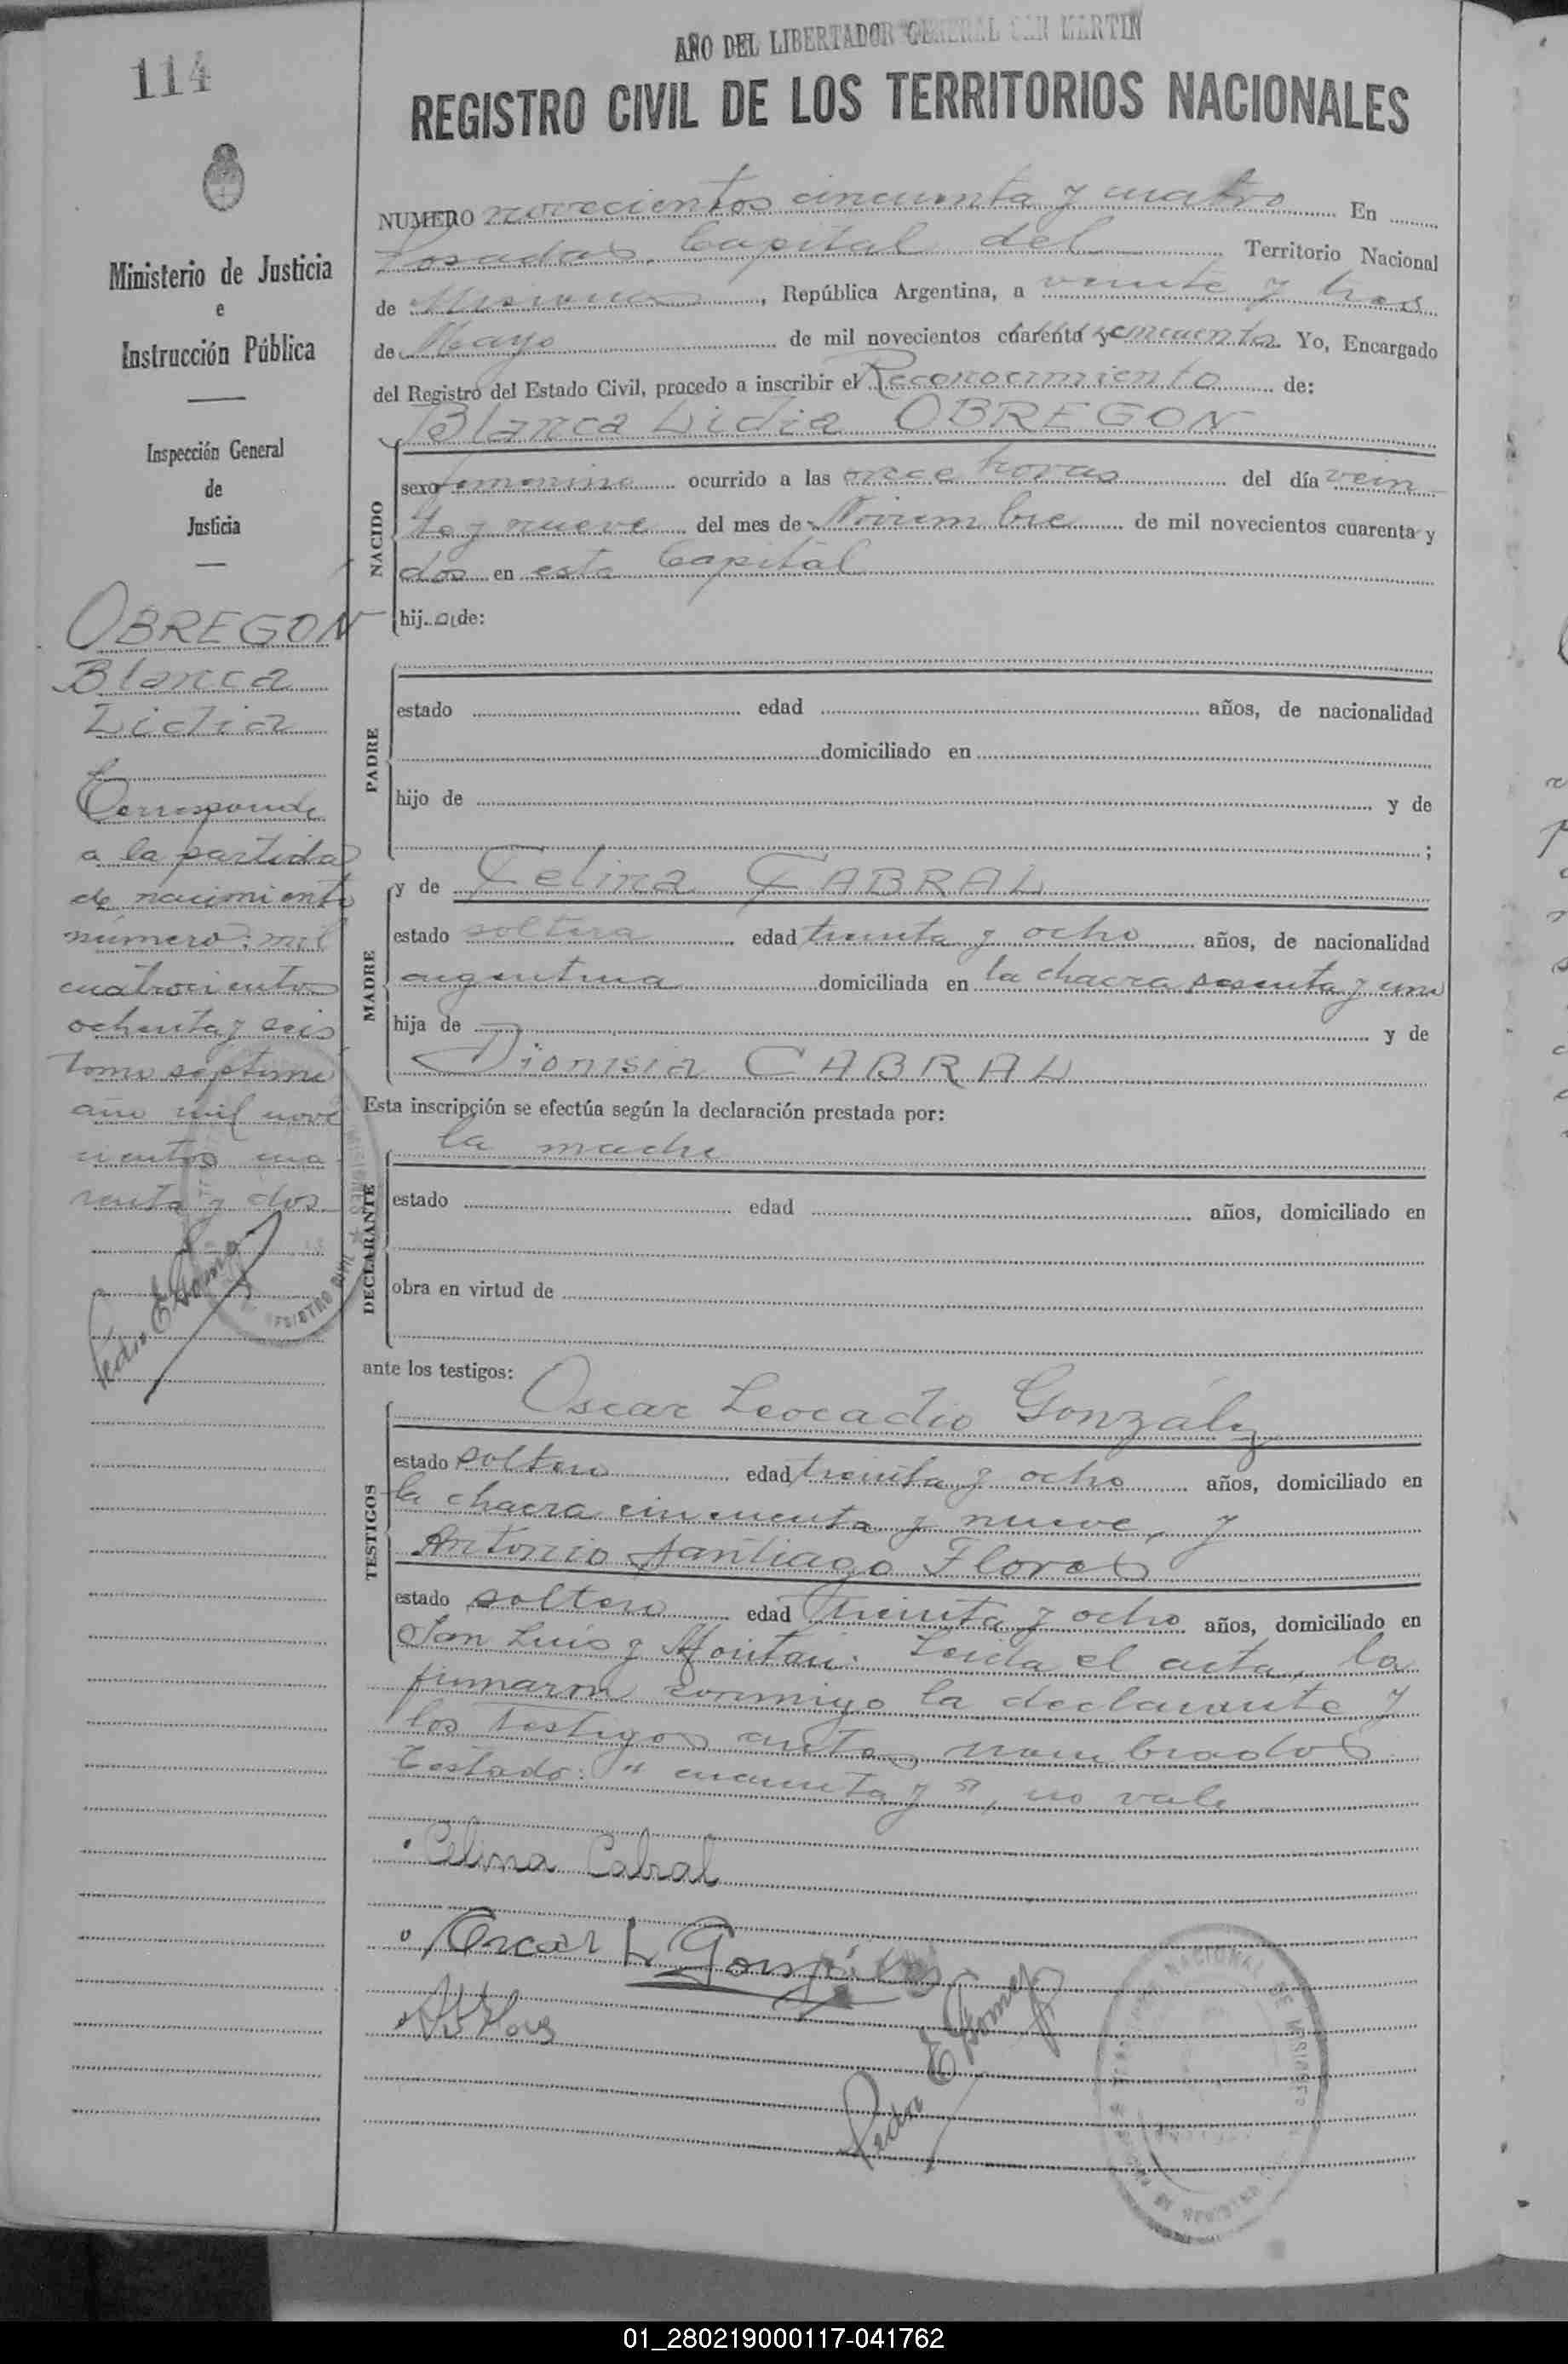 114
AÑO DEL LIBERTADOR GENERAL SAN MARTIN
REGISTRO CIVIL DE LOS TERRITORIOS NACIONALES
Ministerio de Justicia
e
Instrucción Pública
Inspección General
de
Justicia
OBREGON
Blanca
Lidia
Corresponde
a la partida
de nacimiento
número: mil
cuatrocientos
ochenta y seis
tomo septimo
año mil nove
cientos cua
renta y dos
Pedro E Gomez
NUMERO novecientos cincuenta y cuatro En
Posadas, Capital del Territorio Nacional
de Misiones, República Argentina, a veinte y tres
de Mayo de mil novecientos cuarenta y cincuenta Yo, Encargado
del Registro del Estado Civil, procedo a inscribir el Reconocimiento de:
Blanca Lidia OBREGON
NACIDO
sexo femenino ocurrido a las once horas del día vein
te y nueve del mes de Noviembre de mil novecientos cuarenta y
dos en esta Capital
hij a de:
PADRE
estado edad años, de nacionalidad
domiciliado en
hijo de y de
;
MADRE
y de Celina CABRAL
estado soltera edad treinta y ocho años, de nacionalidad
argentina domiciliada en la chacra sesenta y uno
hija de y de
Dionisia CABRAL
Esta inscripción se efectúa según la declaración prestada por:
la madre
DECLARANTE
estado edad años, domiciliado en
obra en virtud de
ante los testigos:
TESTIGOS
Oscar Leocadio González
estado soltero edad treinta y ocho años, domiciliado en
la chacra cincuenta y nueve, y
Antonio Santiago Flores
estado soltero edad treinta y ocho años, domiciliado en
San Luis y Leida el acta, la
firmaron conmigo la declarante y
los testigos antes nombrados
Testado: "cuarenta y", no vale
Celina Cabral
Oscar L González
Pedro E Gomez
01_280219000117-041762